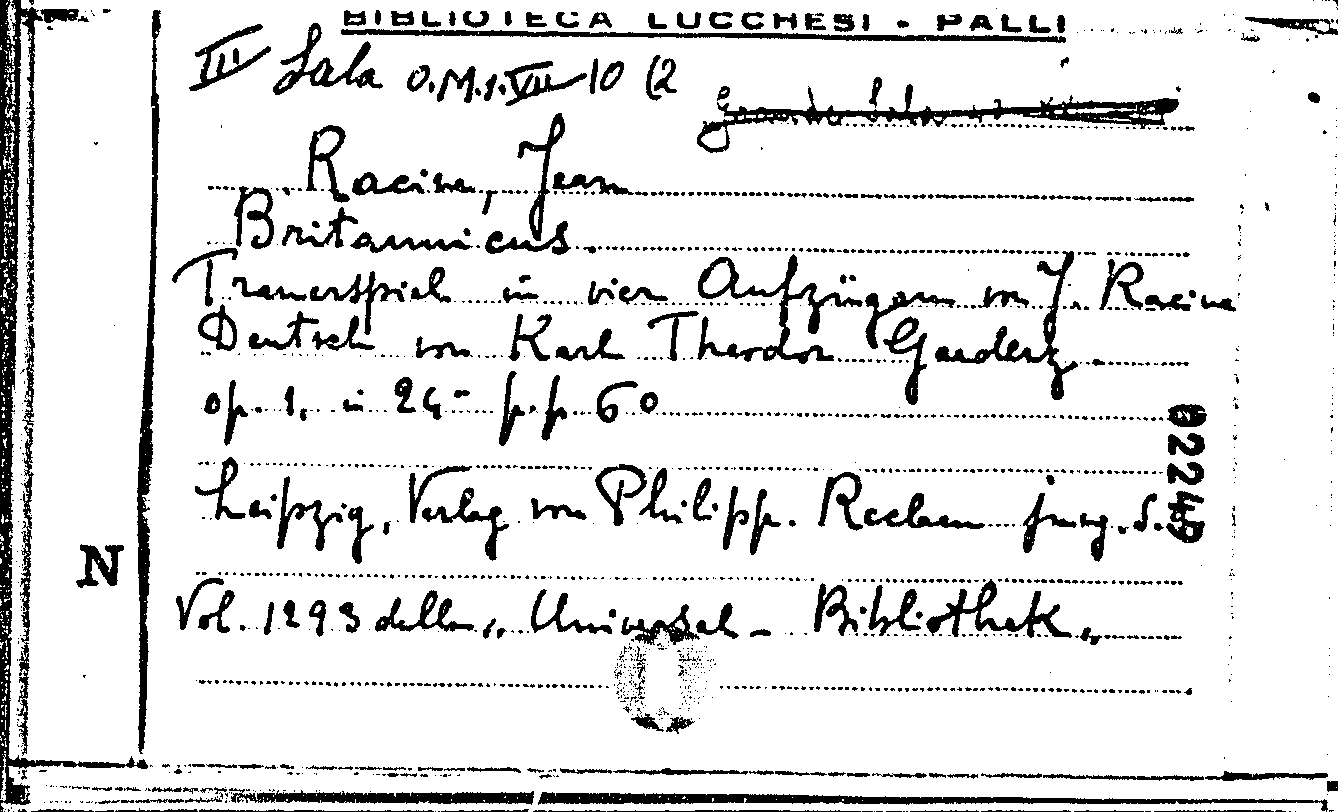 BIBLIOTECA LUCCHESI - PALLI
III Sala O.M.1.VII 10 (2
Grande Sala
Racine, Jean
Britannicus.
Trauerspiel in vier Aufzügen von J. Racine
Deutsch von Karl Theodor Gaedertz.
op. 1. in 24- p.p 60
02249
Leipzig, Verlag von Philipp. Reclam jung. S.d.
N
Vol. 1293 della „ Universal - Bibliothek „